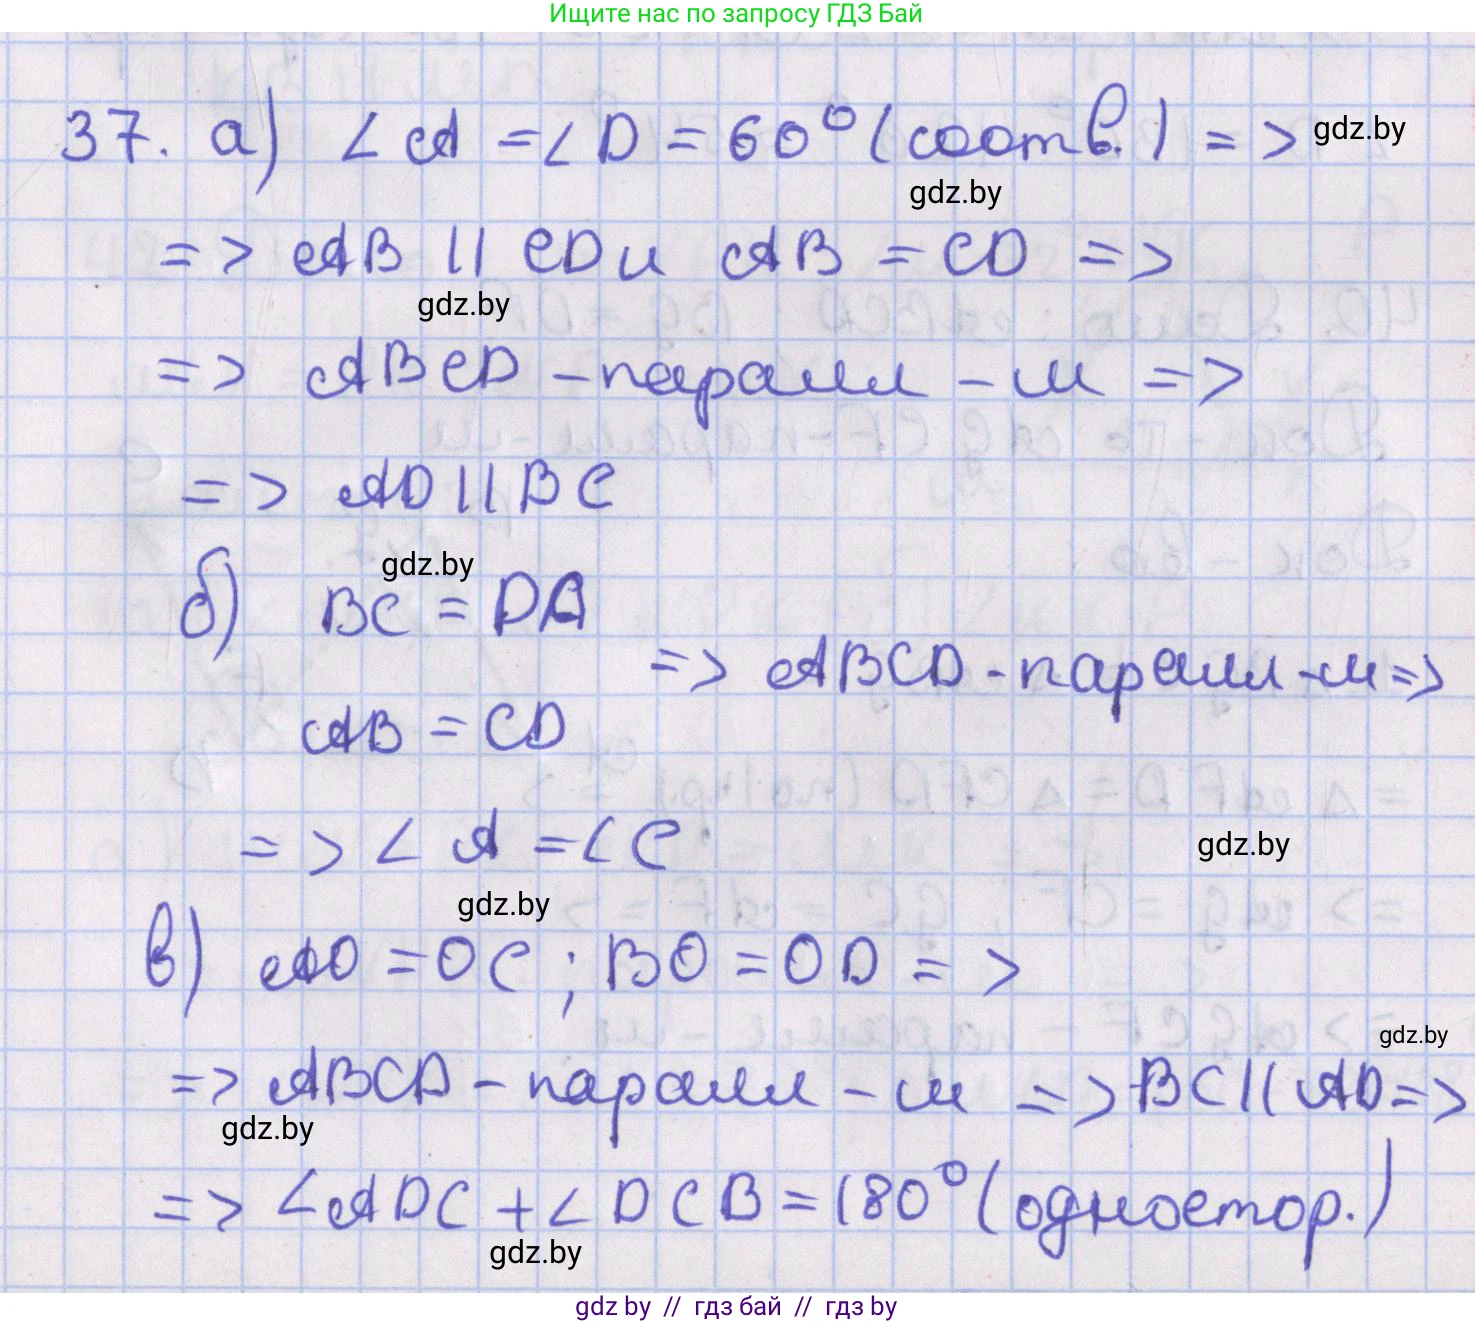 Ищите нас по запросу ГДЗ Бай
37. а) ∠A = ∠D = 60° (соотв.) => gdz.by
gdz.by
=> AB || CD и AB = CD =>
gdz.by
=> ABCD - паралл - м =>
=> AD || BC
gdz.by
б) BC = DA
=> ABCD - паралл - м =>
AB = CD
=> ∠A = ∠C
gdz.by
gdz.by
в) AO = OC ; BO = OD =>
gdz.by
=> ABCD - паралл - м => BC || AD =>
gdz.by
=> ∠ADC + ∠DCB = 180° (одностор.)
gdz.by
gdz by // гдз бай // гдз by